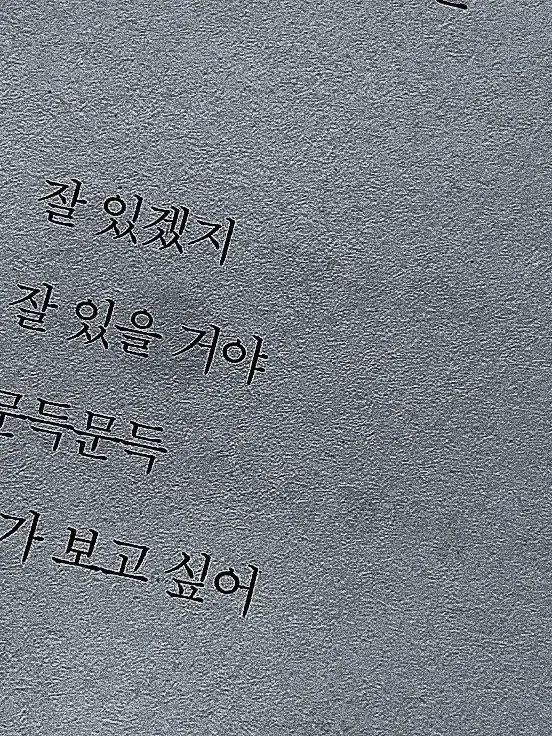 잘 있겠지
잘 있을 거야
문득문득
가 보고 싶어